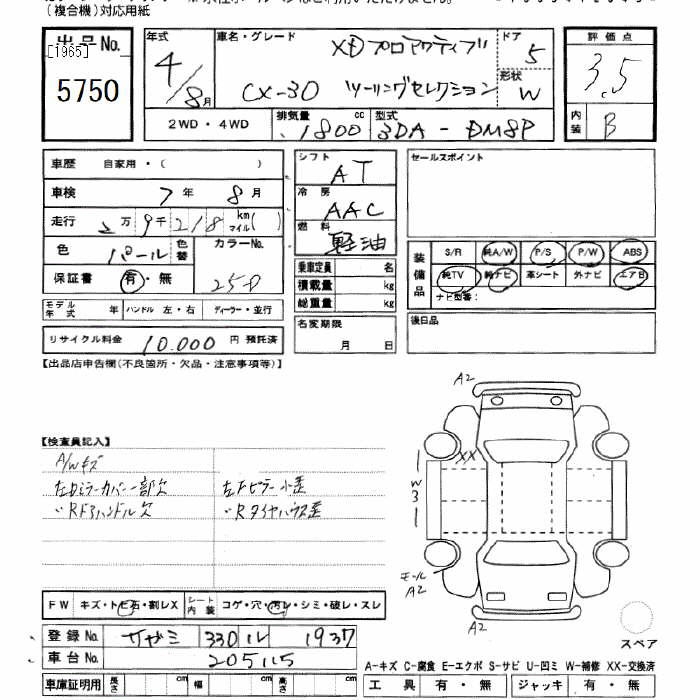 (複合機)対応用紙
出品No.
[1965]
5750
年式
4/8月
車名・グレード
XDプロアクティブ
CX-30 ツーリングセレクション
ドア
5
形状
W
評価点
3.5
内装
B
2WD・4WD
排気量 1800 cc
型式 3DA-DM8P
車歴 自家用・( )
車検 7年 8月
走行 2万9千218 km マイル( )
色 パール 色替
カラーNo. 25D
保証書 有・無
モデル年式 年 ハンドル 左・右 ディーラー・並行
リサイクル料金 10.000 円 預託済
シフト AT
冷房 AAC
燃料 軽油
乗車定員 名
積載量 kg
総重量 kg
名変期限
月 日
セールスポイント
装備品
S/R 純A/W P/S P/W ABS
純TV 純ナビ 革シート 外ナビ エアB
ナビ型番:
後日品
【出品店申告欄(不良箇所・欠品・注意事項等)】
【検査員記入】
A/Wキズ
左Dミラーカバー一部欠
〃RFアハンドル欠
左Fピラー小歪
〃Rタイヤハウス歪
A2
XX
W3
モール
A2
A2
スペア
FW キズ・トビ石・割レX シート内装 コゲ・穴・汚レ・シミ・破レ・スレ
登録No. サガミ 330 ル 1937
車台No. 205115
車庫証明用 長さ cm 幅 cm 高さ cm
A-キズ C-腐食 E-エクボ S-サビ U-凹ミ W-補修 XX-交換済
工具 有・無 ジャッキ 有・無